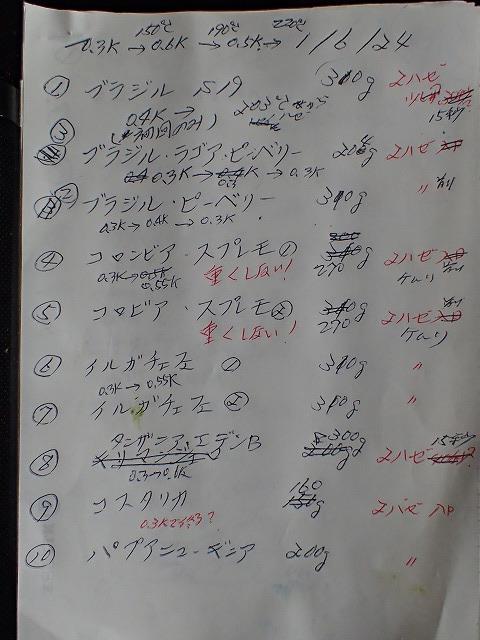 150℃ 190℃ 220℃
0.3K→0.6K→0.5K→ 1/6/24
① ブラジル S19 310g 2ハゼ
0.4K→ 203℃から 15秒
(初回のみ)
③ ブラジル・ラゴア・ピーベリー 200g 2ハゼ
0.3K→0.3→0.3K
② ブラジル・ピーベリー 310g 〃 前
0.3K→0.4K→0.3K
④ コロンビア・スプレモ① 2ハゼ 前
0.3K→0.55K 重くしない! 270 ケムリ
⑤ コロビア・スプレモ② 2ハゼ 前
重くしない! 270 ケムリ
⑥ イルガチェフェ ① 310g 〃
0.3K→0.55K
⑦ イルガチェフェ ② 310g 〃
⑧ タンガニア・エデンB 300g 2ハゼ 15秒
0.3→0.6K
⑨ コスタリカ 160g 2ハゼ 入口
⑩ パプアニューギニア 200g 〃